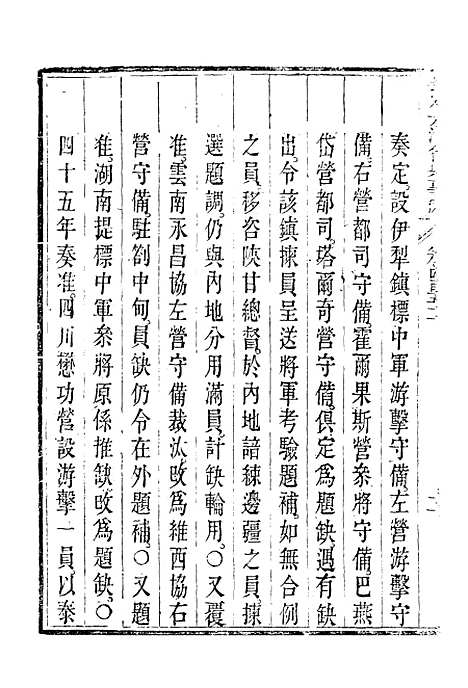 奏定。設伊犁鎮標中軍游擊守備。左營游擊守
備。右營都司守備。霍爾果斯營叅將守備。巴燕
岱營都司。塔爾奇營守備。俱定爲題缺。遇有缺
出。令該鎮揀員呈送將軍考驗題補。如無合例
之員。移咨陝甘總督。於內地諳練邊疆之員。揀
選題調。仍與內地分用滿員。計缺輪用。〇又覆
准。雲南永昌協左營守備裁汰。改爲維西協右
營守備。駐劄中甸。員缺仍令在外題補。〇又題
准。湖南提標中軍叅將原係推缺。改爲題缺。〇
四十五年奏准。四川懋功營設游擊一員。以泰